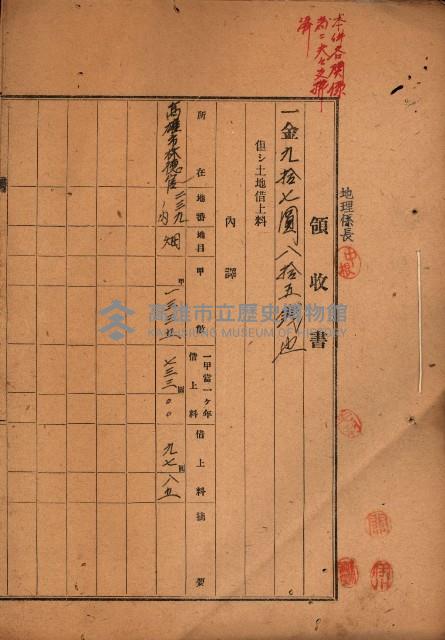 本件各關係
濟
地理係長
領收書
一金九拾七圓八拾五錢也
但シ土地借上料
內譯
所在 地番 地目 甲數 一甲當一ヶ年借上料 借上料 摘要
高雄市林德官 二三九ノ內 畑 甲 一三三五 七三三圓〇〇 九七圓八五
高雄市立歷史博物館
KAOHSIUNG MUSEUM OF HISTORY